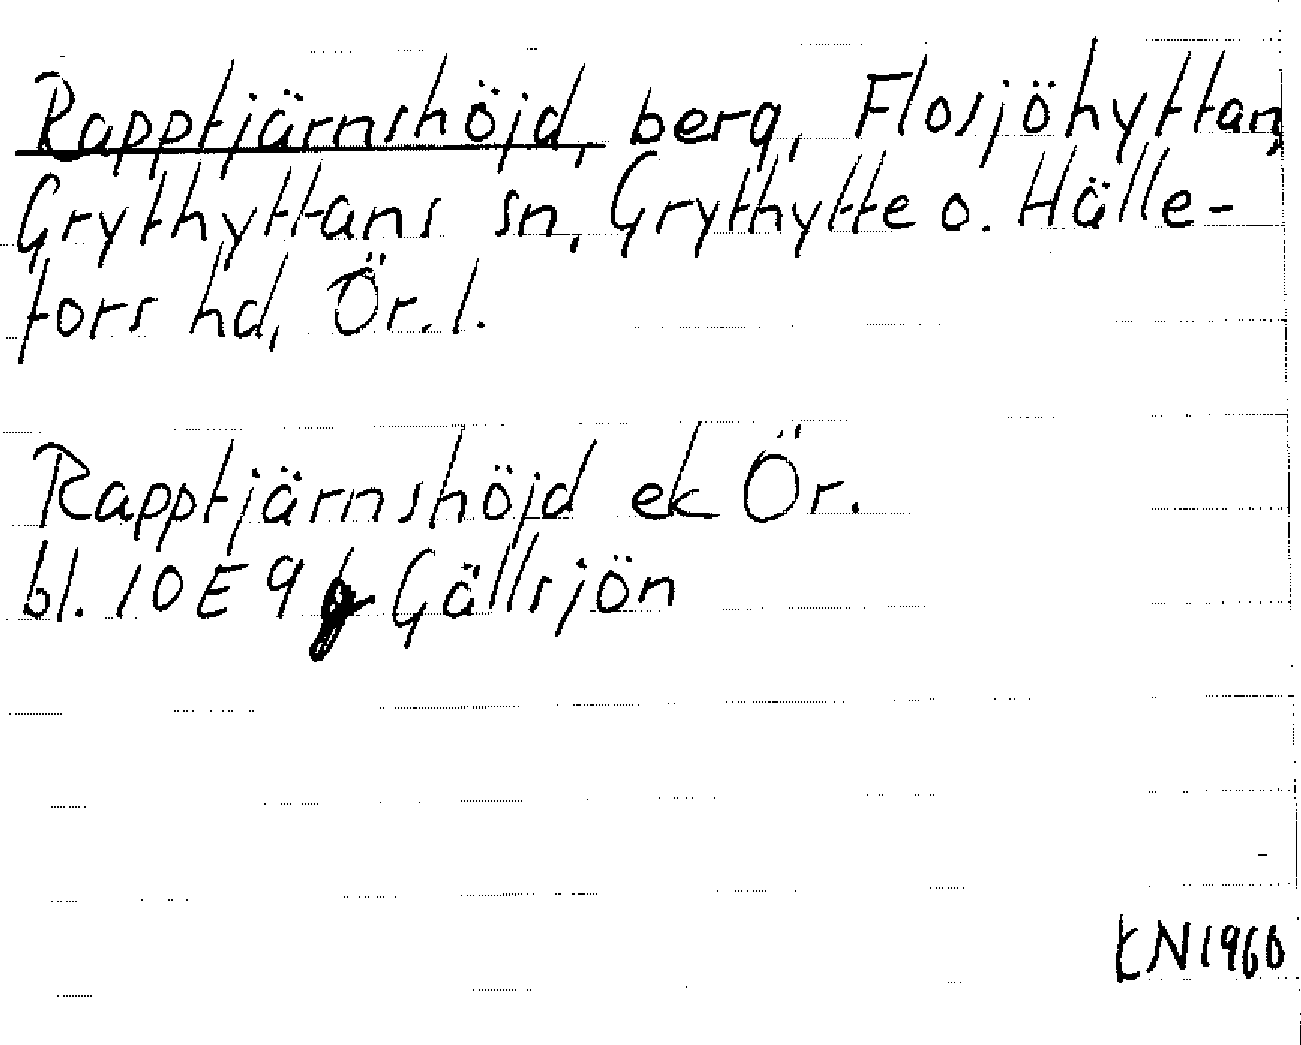 Rapptjärnshöjd, berg, Flosjöhyttan,
Grythyttans sn, Grythytte o. Hälle-
fors hd, Ör. l.
Rapptjärnshöjd ek Ör.
bl. 10 E 9 g Gällsjön
KN 1960